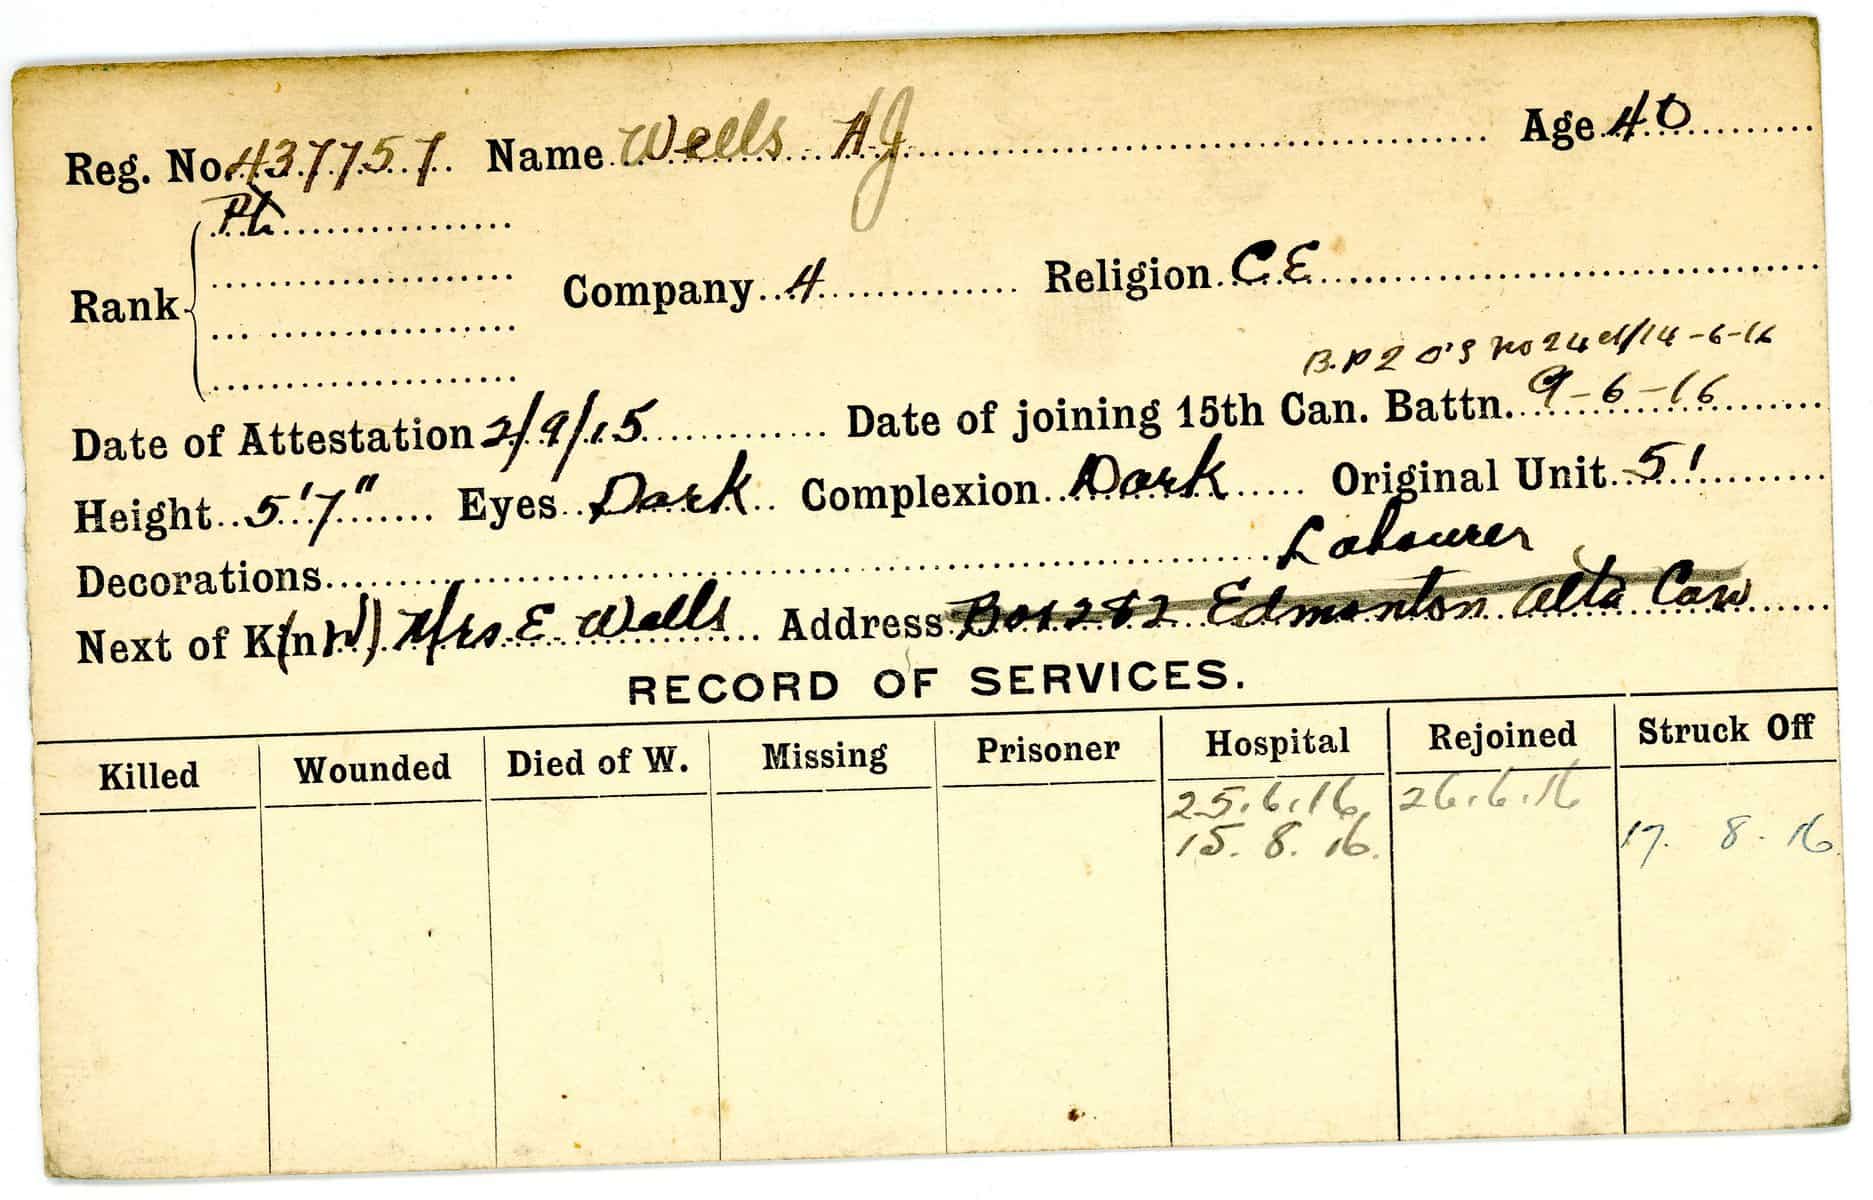 Reg. No. 437757 Name Wells A J Age 40
Rank Pte
Company 4 Religion C.E.
B.P2 O'S No 24 d/14-6-16
Date of Attestation 2/9/15 Date of joining 15th Can. Battn. 9-6-16
Height 5'7" Eyes Dark Complexion Dark Original Unit 51
Decorations Labourer
Next of Kin (W) Mrs E Wells Address Box 282 Edmonton Alta Can
RECORD OF SERVICES.
Killed Wounded Died of W. Missing Prisoner Hospital Rejoined Struck Off
25.6.16. 26.6.16
15.8.16. 17.8.16